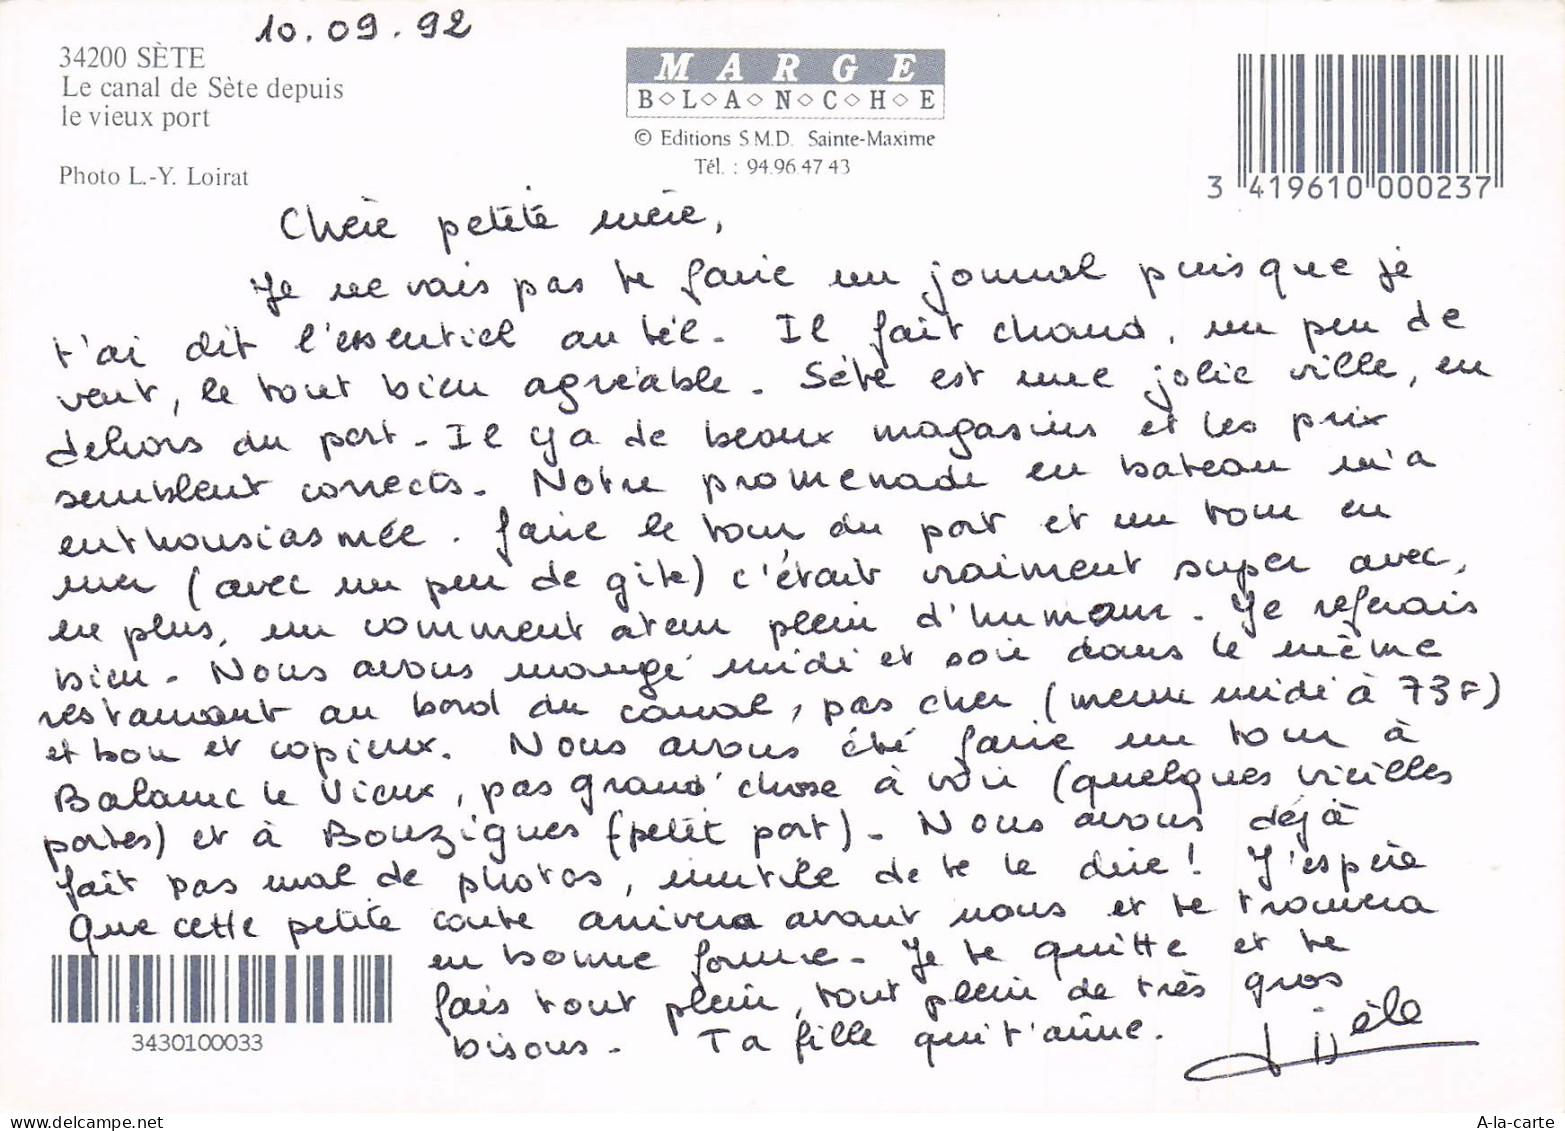 10.09.92
34200 SÈTE
Le canal de Sète depuis
le vieux port
Photo L.-Y. Loirat
MARGE
B◇L◇A◇N◇C◇H◇E
© Editions S.M.D. Sainte-Maxime
Tél. : 94.96.47 43
3 419610 000237
Chère petite mère,
Je ne vais pas te faire un journal puisque je
t'ai dit l'essentiel au tél. Il fait chaud, un peu de
vent, le tout bien agréable. Sète est une jolie ville, en
dehors du port. Il y a de beaux magasins et les prix
semblent corrects. Notre promenade en bateau m'a
enthousiasmée. faire le tour du port et un tour en
mer (avec un peu de gite) c'était vraiment super avec,
en plus, un commentateur plein d'humour. Je referais
bien. Nous avons mangé midi et soir dans le même
restaurant au bord du canal, pas cher (menu midi à 73F)
et bon et copieux. Nous avons été faire un tour à
Balaruc le Vieux, pas grand'chose à voir (quelques vieilles
portes) et à Bouzigues (petit port). Nous avons déjà
fait pas mal de photos, inutile de te le dire! J'espère
que cette petite carte arrivera avant nous et te trouvera
en bonne forme. Je te quitte et te
fais tout plein, tout plein de très gros
bisous. Ta fille qui t'aime.
3430100033
A-la-carte